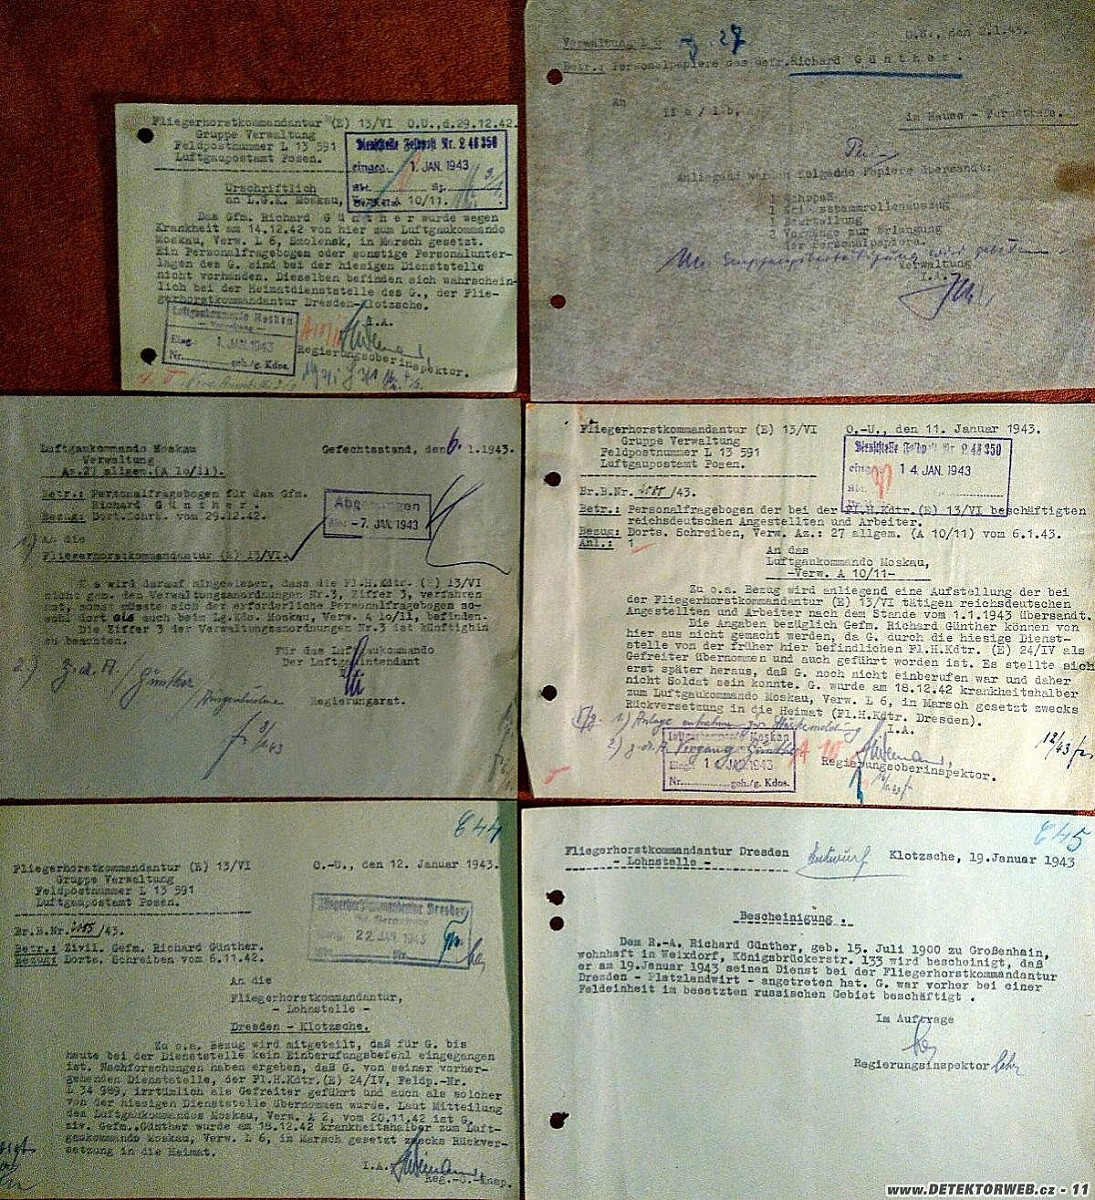 Fliegerhorstkommandantur (E) 13/VI O.U.,d.29.12.42.
Gruppe Verwaltung
Feldpostnummer L 13 591
Luftgaupostamt Posen.
Dienststelle Feldpost Nr. L 48 350
eingeg. 1. JAN. 1943
A 10/11.
Urschriftlich
an L.G.K. Moskau,
Das Gfm. Richard G ü n t h e r wurde wegen
Krankheit am 14.12.42 von hier zum Luftgaukommando
Moskau, Verw. L 6, Smolensk, in Marsch gesetzt.
Ein Personalfragebogen oder sonstige Personalunter-
lagen des G. sind bei der hiesigen Dienststelle
nicht vorhanden. Dieselben befinden sich wahrschein-
lich bei der Heimatdienststelle des G., der Flie-
gerhorstkommandantur Dresden-Klotzsche.
Luftgaukommando Moskau
Eing. 1. JAN. 1943
Nr. geh./g. Kdos.
I.A.
Regierungsoberinspektor.
Verwaltung L 6
O.U., den 2.1.43.
Betr.: Personalpapiere des Gefr. Richard G ü n t h e r .
An
im Hause -
Anliegend werden folgende Papiere übersandt:
1 Kriegsstammrollenauszug
1 Beurteilung
2 Vorgänge zur Erlangung
der Personalpapiere.
Um Empfangsbestätigung wird gebeten
Verwaltung
I.A.
Luftgaukommando Moskau
Verwaltung
Az.27 allgem.(A 10/11).
Gefechtsstand, den 6.1.1943.
Betr.: Personalfragebogen für das Gfm.
Richard G ü n t h e r .
Bezug: Dort.Schrb. vom 29.12.42.
Abgegangen
-7. JAN. 1943
1) An die
Fliegerhorstkommandantur (E) 13/VI.
Es wird darauf hingewiesen, dass die Fl.H.Kdtr. (E) 13/VI
nicht gem. den Verwaltungsanordnungen Nr.3, Ziffer 3, verfahren
hat, sonst müsste sich der erforderliche Personalfragebogen so-
wohl dort als auch beim Lg.Kdo. Moskau, Verw. A 10/11, befinden.
Die Ziffer 3 der Verwaltungsanordnungen Nr.3 ist künftighin
zu beachten.
Für das Luftgaukommando
Der Luftgauintendant
Regierungsrat.
2) z.d.A. Günther
Fliegerhorstkommandantur (E) 13/VI O.-U., den 11. Januar 1943.
Gruppe Verwaltung
Feldpostnummer L 13 591
Luftgaupostamt Posen.
Dienststelle Feldpost Nr. L 48 350
eing. 14. JAN. 1943
Br.B.Nr. /43.
Betr.: Personalfragebogen der bei der Fl.H.Kdtr.(E) 13/VI beschäftigten
reichsdeutschen Angestellten und Arbeiter.
Bezug: Dorts. Schreiben, Verw. Az.: 27 allgem. (A 10/11) vom 6.1.43.
Anl.: 1
An das
Luftgaukommando Moskau,
-Verw. A 10/11-
Zu o.a. Bezug wird anliegend eine Aufstellung der bei
der Fliegerhorstkommandantur (E) 13/VI tätigen reichsdeutschen
Angestellten und Arbeiter nach dem Stande vom 1.1.1943 übersandt.
Die Angaben bezüglich Gefm. Richard Günther können von
hier aus nicht gemacht werden, da G. durch die hiesige Dienst-
stelle von der früher hier befindlichen Fl.H.Kdtr. (E) 24/IV als
Gefreiter übernommen und auch geführt worden ist. Es stellte sich
erst später heraus, daß G. noch nicht einberufen war und daher
nicht Soldat sein konnte. G. wurde am 18.12.42 krankheitshalber
zum Luftgaukommando Moskau, Verw. L 6, in Marsch gesetzt zwecks
Rückversetzung in die Heimat (Fl.H.Kdtr. Dresden).
I.A.
Luftgaukommando Moskau
Nr. geh./g. Kdos.
Regierungsoberinspektor.
E 44
Fliegerhorstkommandantur (E) 13/VI O.-U., den 12. Januar 1943.
Gruppe Verwaltung
Feldpostnummer L 13 591
Luftgaupostamt Posen.
Fliegerhorstkommandantur Dresden
22. JAN. 1943
Br.B.Nr. /43.
Betr.: Zivil. Gefm. Richard Günther.
Bezug: Dorts. Schreiben vom 6.11.42.
An die
Fliegerhorstkommandantur,
- Lohnstelle -
Dresden - Klotzsche.
Zu o.a. Bezug wird mitgeteilt, daß für G. bis
heute bei der Dienststelle kein Einberufungsbefehl eingegangen
ist. Nachforschungen haben ergeben, daß G. von seiner vorher-
gehenden Dienststelle, der Fl.H.Kdtr.(E) 24/IV, Feldp.-Nr.
L 34 989, irrtümlich als Gefreiter geführt und auch als solcher
von der hiesigen Dienststelle übernommen wurde. Laut Mitteilung
des Luftgaukommandos Moskau, Verw. A 2, vom 20.11.42 ist G.
ziv. Gefm. Günther wurde am 18.12.42 krankheitshalber zum Luft-
gaukommando Moskau, Verw. L 6, in Marsch gesetzt zwecks Rückver-
setzung in die Heimat.
I.A.
Reg.-O.-Insp.
E 45
Fliegerhorstkommandantur Dresden Entwurf Klotzsche, 19.Januar 1943
- Lohnstelle -
Bescheinigung .
Dem R.-A. Richard Günther, geb. 15. Juli 1900 zu Großenhain,
wohnhaft in Weixdorf, Königsbrückerstr. 133 wird bescheinigt, daß
er am 19.Januar 1943 seinen Dienst bei der Fliegerhorstkommandantur
Dresden - Platzlandwirt - angetreten hat. G. war vorher bei einer
Feldeinheit im besetzten russischen Gebiet beschäftigt .
Im Auftrage
Regierungsinspektor
www.DETEKTORWEB.cz - 11